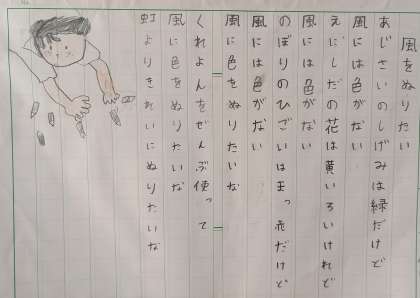 風をぬりたい
あじさいのしげみは緑だけど
風には色がない
えにしだの花は黄いろいけれど
風には色がない
のぼりのひごいはまっ赤だけど
風には色がない
風に色をぬりたいな
くれよんをぜんぶ使って
風に色をぬりたいな
虹よりきれいにぬりたいな